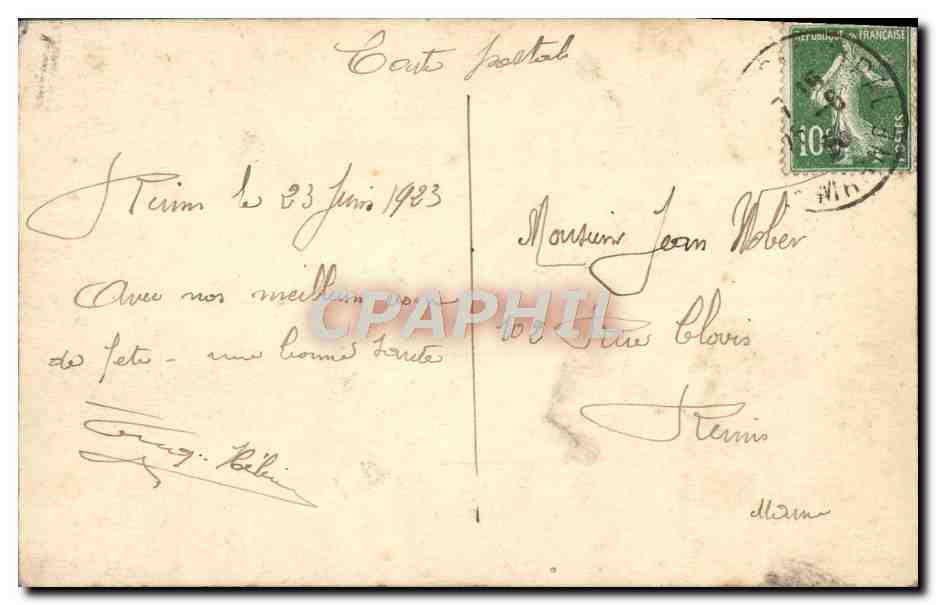 Carte postale
RÉPUBLIQUE FRANÇAISE
10
POSTES
Reims le 23 Juin 1923
Avec nos meilleurs voeux
de fete - une bonne Sante
Monsieur Jean Nober
CPAPHIL
103 Rue Clovis
Reims
Marne